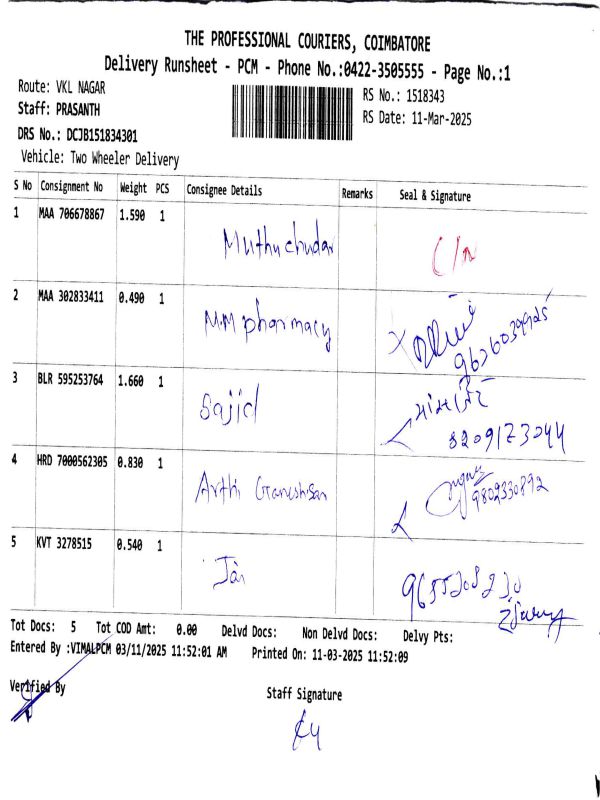 THE PROFESSIONAL COURIERS, COIMBATORE
Delivery Runsheet - PCM - Phone No.:0422-3505555 - Page No.:1
Route: VKL NAGAR
RS No.: 1518343
Staff: PRASANTH
RS Date: 11-Mar-2025
DRS No.: DCJB151834301
Vehicle: Two Wheeler Delivery
S No Consignment No Weight PCS Consignee Details Remarks Seal & Signature
1 MAA 706678867 1.590 1 Muthuchudar
2 MAA 302833411 0.490 1 M.M pharmacy
3 BLR 595253764 1.660 1 Sajid
8209173044
4 HRD 7000562305 0.830 1 Arthi Ganeshsan
9802330892
5 KVT 3278515 0.540 1
Tot Docs: 5 Tot COD Amt: 0.00 Delvd Docs: Non Delvd Docs: Delvy Pts:
Entered By :VIMALPCM 03/11/2025 11:52:01 AM Printed On: 11-03-2025 11:52:09
Verified By
Staff Signature